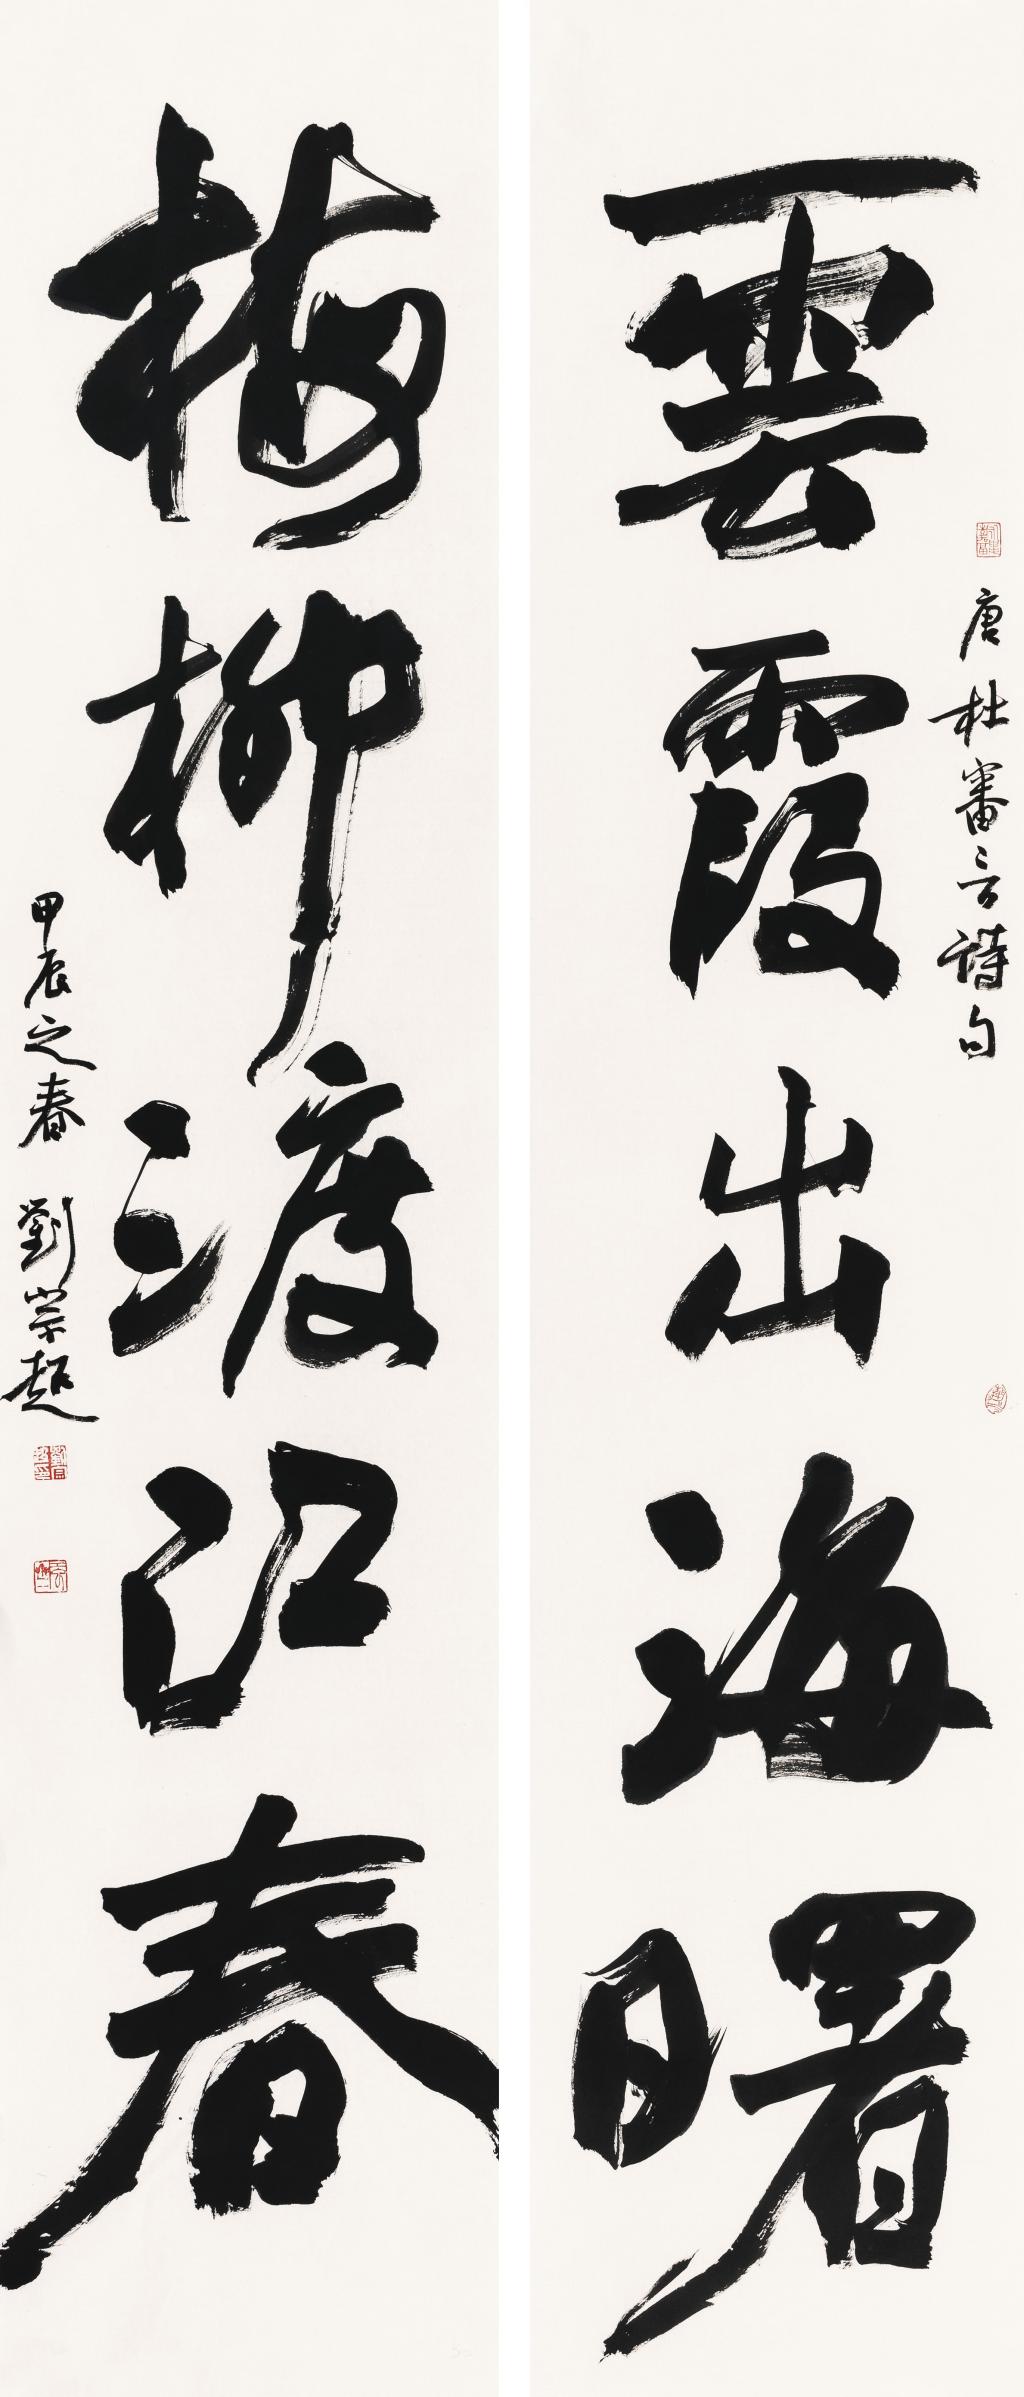 雲霞出海曙
唐杜審言詩句
梅柳渡江春
甲辰之春 劉崇超